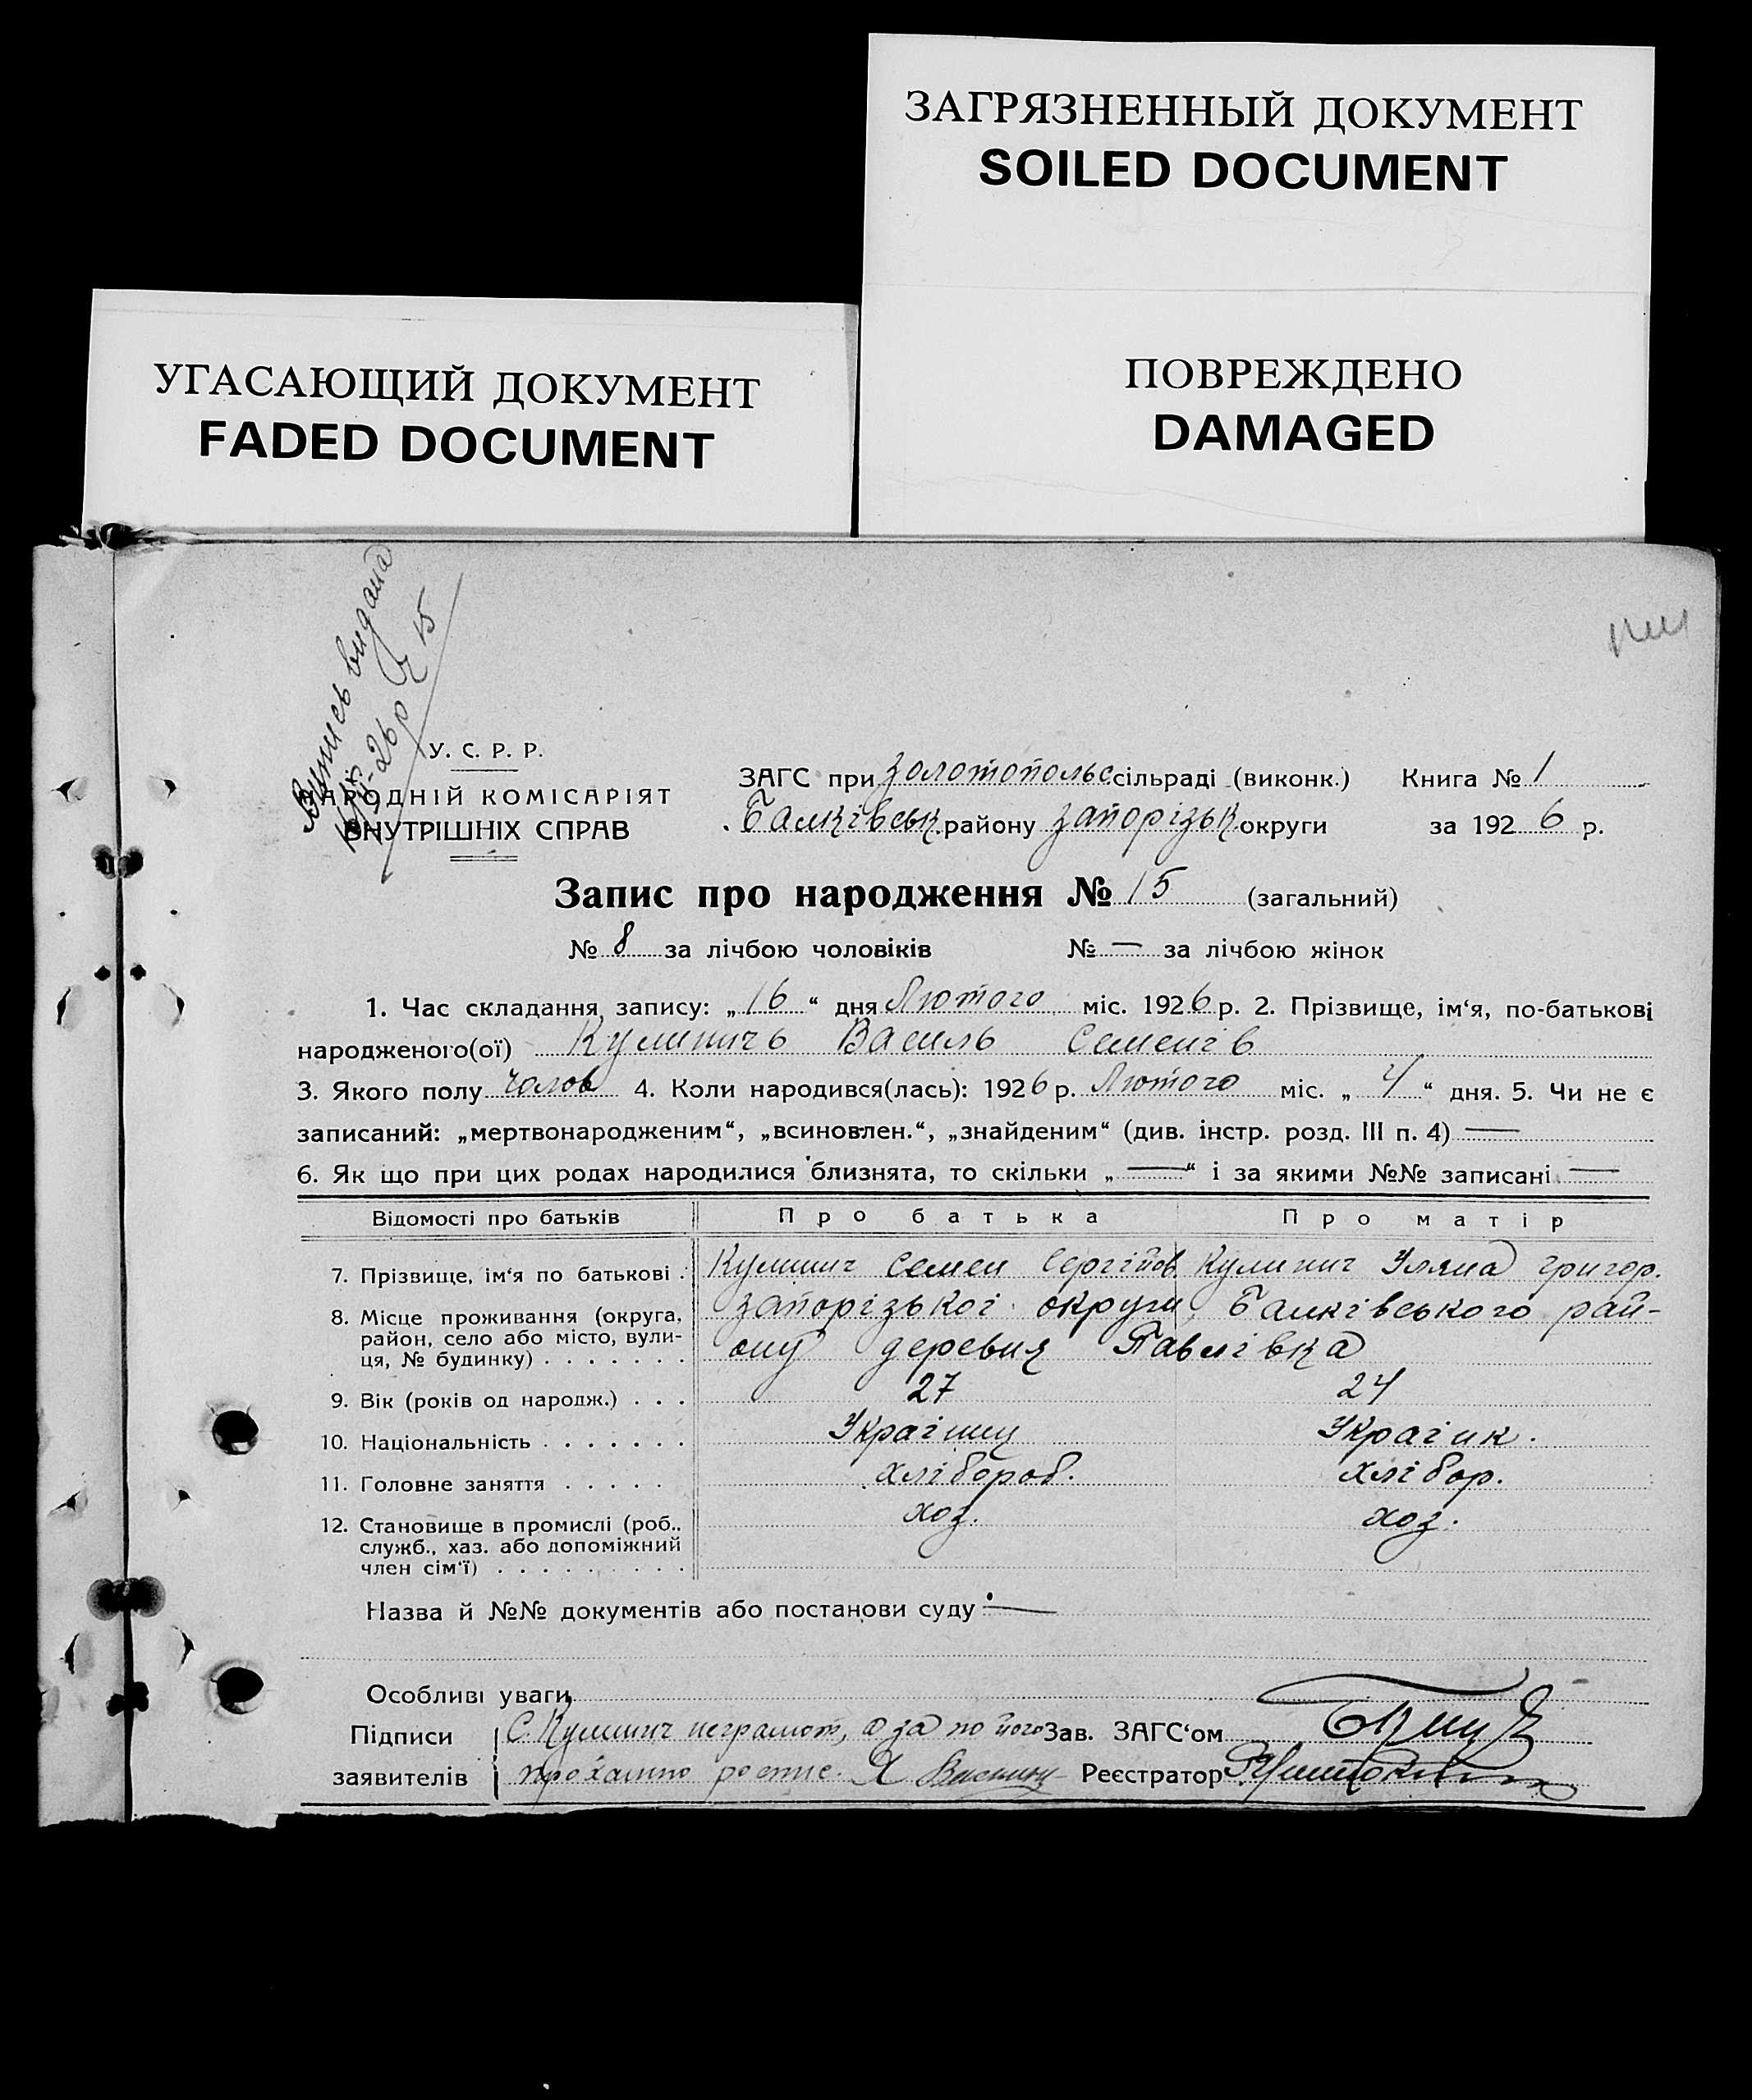 ЗАГРЯЗНЕННЫЙ ДОКУМЕНТ
SOILED DOCUMENT
ПОВРЕЖДЕНО
DAMAGED
УГАСАЮЩИЙ ДОКУМЕНТ
FADED DOCUMENT
Випись видана
-26 р ч 15
У. С. Р. Р.
НАРОДНІЙ КОМІСАРІЯТ
ВНУТРІШНІХ СПРАВ
ЗАГС при Золотопольс сільраді (виконк.) Книга № 1
Балківськ. району Запорізьк округи за 1926 р.
Запис про народження № 15 (загальний)
№ 8 за лічбою чоловіків № — за лічбою жінок
1. Час складання запису: „16“ дня Лютого міс. 1926 р. 2. Прізвище, ім‘я, по-батькові
народженого(ої) Кулиничь Василь Семенів
3. Якого полу чолов 4. Коли народився(лась): 1926 р. Лютого міс. „4“ дня. 5. Чи не є
записаний: „мертвонародженим“, „всиновлен.“, „знайденим“ (див. інстр. розд. III п. 4) —
6. Як що при цих родах народилися близнята, то скільки „—“ і за якими №№ записані —
Відомості про батьків Про батька Про матір
7. Прізвище, ім‘я по батькові . Кулинич Семен Сергійов. Кулинич Уляна Григор.
8. Місце проживання (округа, район, село або місто, вулиця, № будинку) . . . . . . . Запорізької округи, Балківського рай-
ону деревня Павлівка
9. Вік (років од народж.) . . . 27 24
10. Національність . . . . . . . Українец Українк.
11. Головне заняття . . . . . хлібороб. хлібор.
12. Становище в промислі (роб., служб., хаз. або допоміжний член сім‘ї) . . . . . . . . . хоз. хоз.
Назва й №№ документів або постанови суду: —
Особливі уваги
Підписи С. Кулинич неграмот, а за по його Зав. ЗАГС‘ом
заявителів проханню роспис. Реєстратор